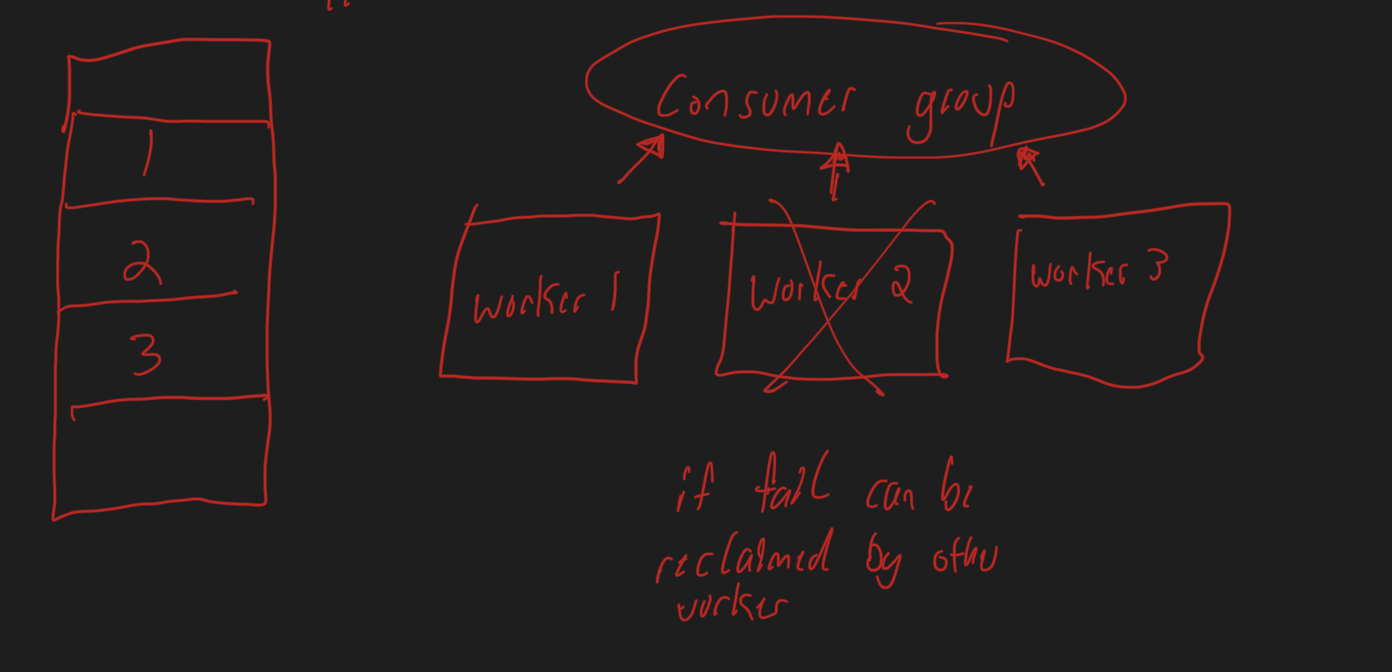 Consumer group
1
2
3
worker 1
worker 2
worker 3
if fail can be
reclaimed by other
worker